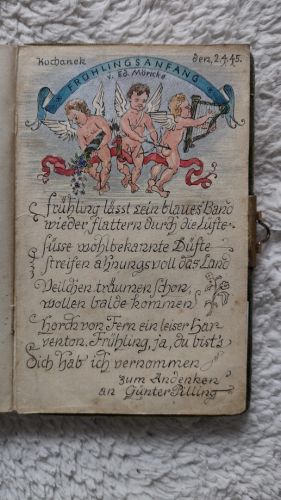 Kochanek den, 2.4.45.
FRÜHLINGSANFANG
v. Ed. Möricke
Frühling lässt sein blaues Band
wieder flattern durch die Lüfte·
süsse wohlbekannte Düfte
streifen ahnungsvoll das Land
Veilchen träumen schon,
wollen balde kommen
Horch von Fern ein leiser Har=
fenton. Frühling, ja, du bist's
Dich hab' ich vernommen
zum Andenken
an Günter Pilling